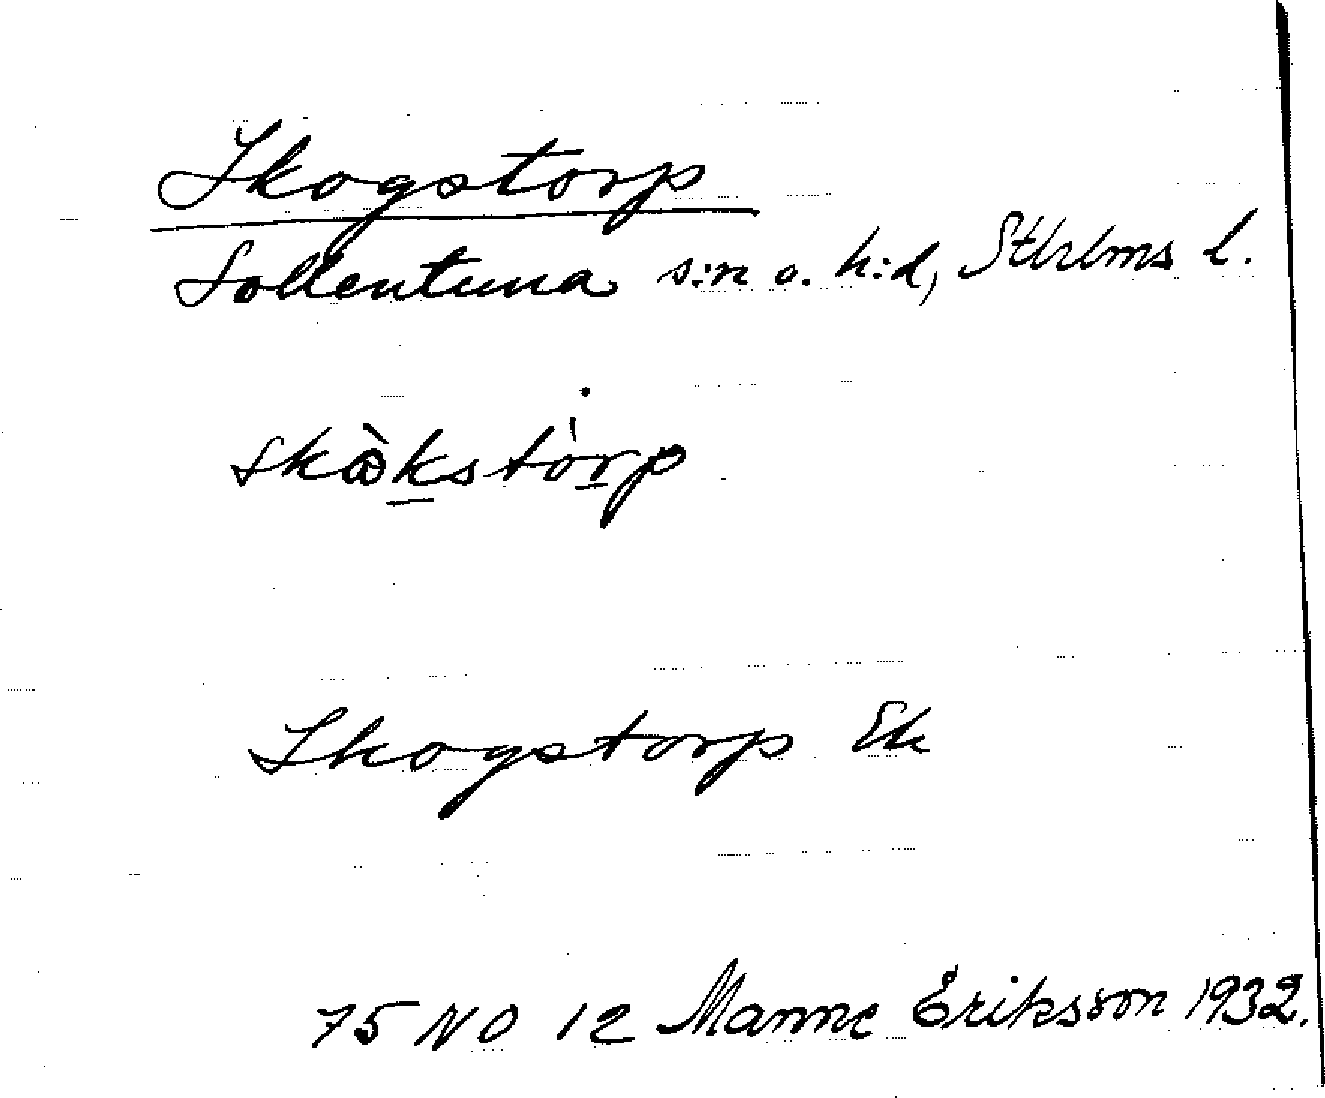 Skogstorp
Sollentuna s:n o. h:d, Sthlms l.
skòkstórp
Skogstorp Ek
75 NO 12 Manne Eriksson 1932.